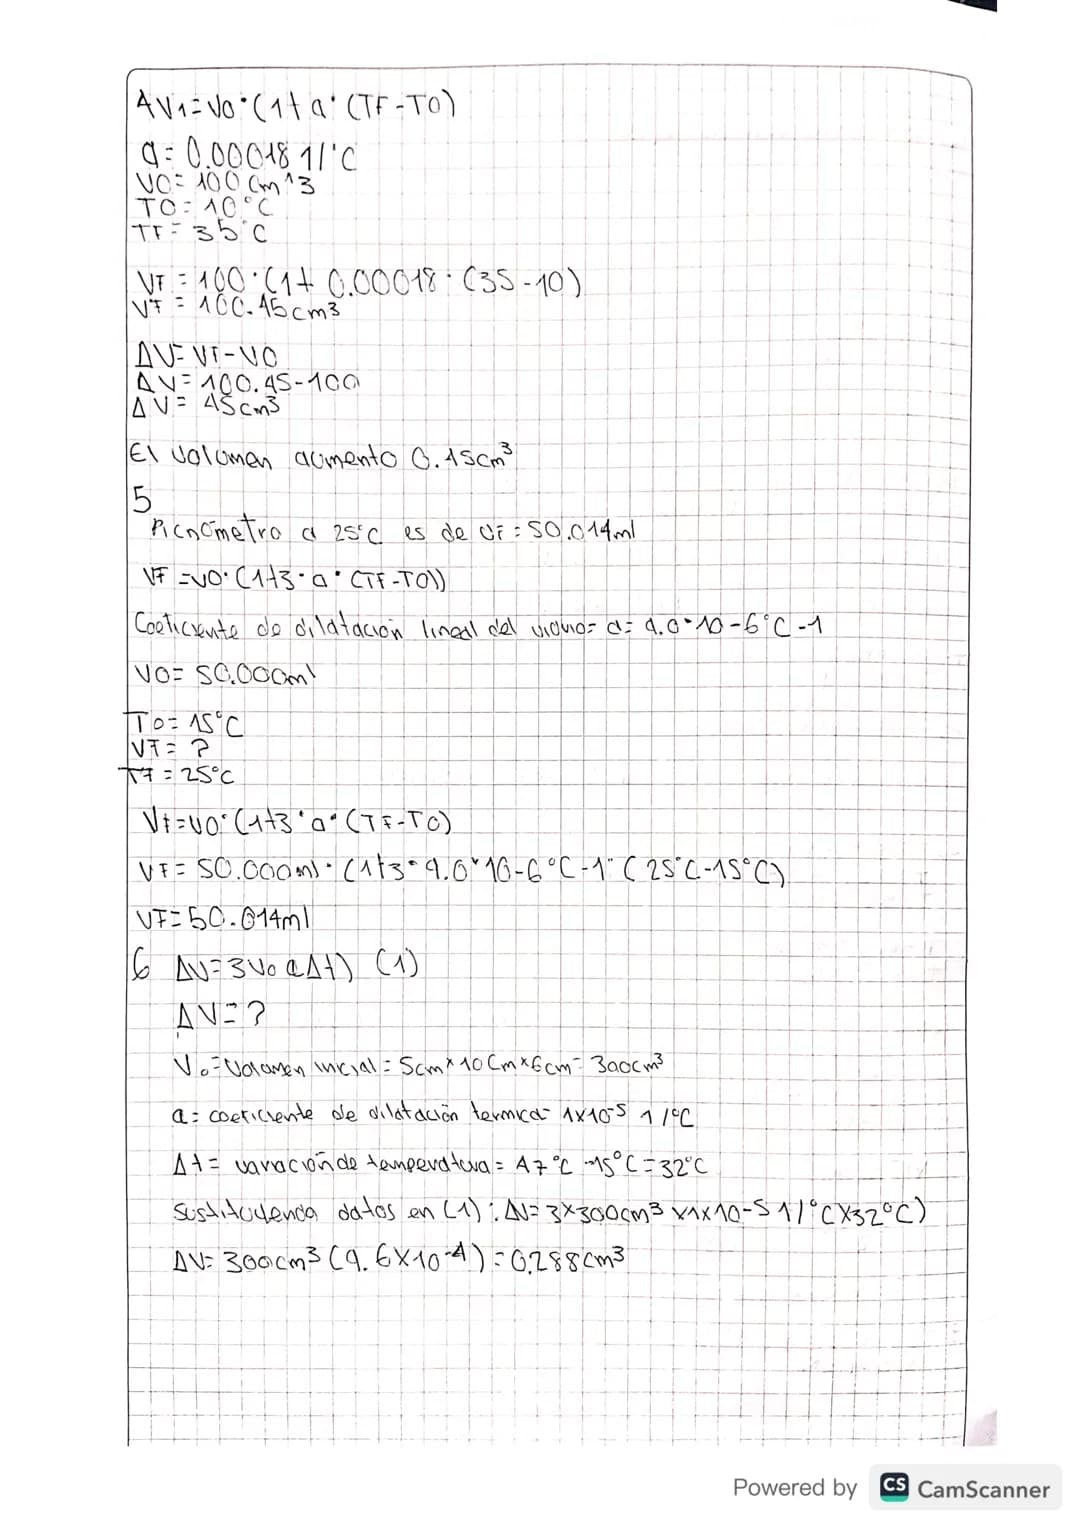 ΔV1=V0·(1+a·(TF-T0)
a=0.00018 1/°C
V0=100cm^3
T0=10°C
TF=35°C
VF=100·(1+0.00018·(35-10)
VF=100.45cm3
ΔV=VF-V0
ΔV=100.45-100
ΔV=45cm3
El volumen aumento 0.45cm3
5
Picnómetro a 25°C es de VF=50.014ml
VF=V0·(1+3·a·(TF-T0))
Coeficiente de dilatación lineal del vidrio= a=9.0·10-6°C-1
V0=50.000ml
T0=15°C
VF=?
TF=25°C
VF=V0·(1+3·a·(TF-T0)
VF=50.000ml·(1+3·9.0·10-6°C-1·(25°C-15°C)
VF=50.014ml
6 ΔV=3V0 aΔt) (1)
ΔV=?
V0=Volumen inicial=5cm×10cm×6cm=300cm3
a=coeficiente de dilatación termica=1×10-5 1/°C
Δt=variación de temperatura=47°C-15°C=32°C
Sustituyendo datos en (1):ΔV=3×300cm3×1×10-5 1/°C×32°C)
ΔV=300cm3(9.6×10-4)=0,288cm3
Powered by CS CamScanner